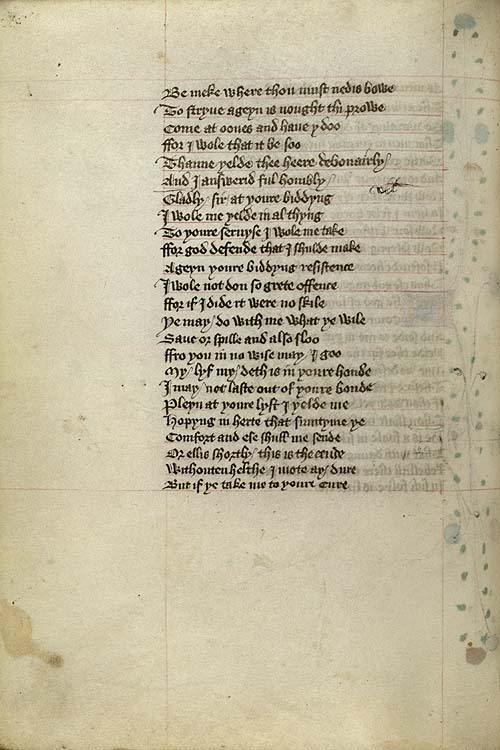 Be meke where thou must nedis bowe
To stryue ageyn is nought thi prowe
Come at oones and haue y doo
ffor I wole that it be soo
Thanne yelde thee heere debonairly
And I answerid ful hombly
Gladly sir at youre biddyng
I wole me yelde in al thyng
To youre seruyse I wole me take
ffor god defende that I shulde make
Ageyn youre biddyng resistence
I wole not don so grete offence
ffor if I dide it were no skile
Ye may do with me what ye wile
Saue or spille and also sloo
ffro you in no wise may I goo
My lyf my deth is in youre honde
I may not laste out of youre bonde
Pleyn at youre lyst I yelde me
Hopyng in herte that sumtyme ye
Comfort and ese shull me sende
Or ellis shortly this is the eende
Withouten helthe I mote ay dure
But if ye take me to youre cure